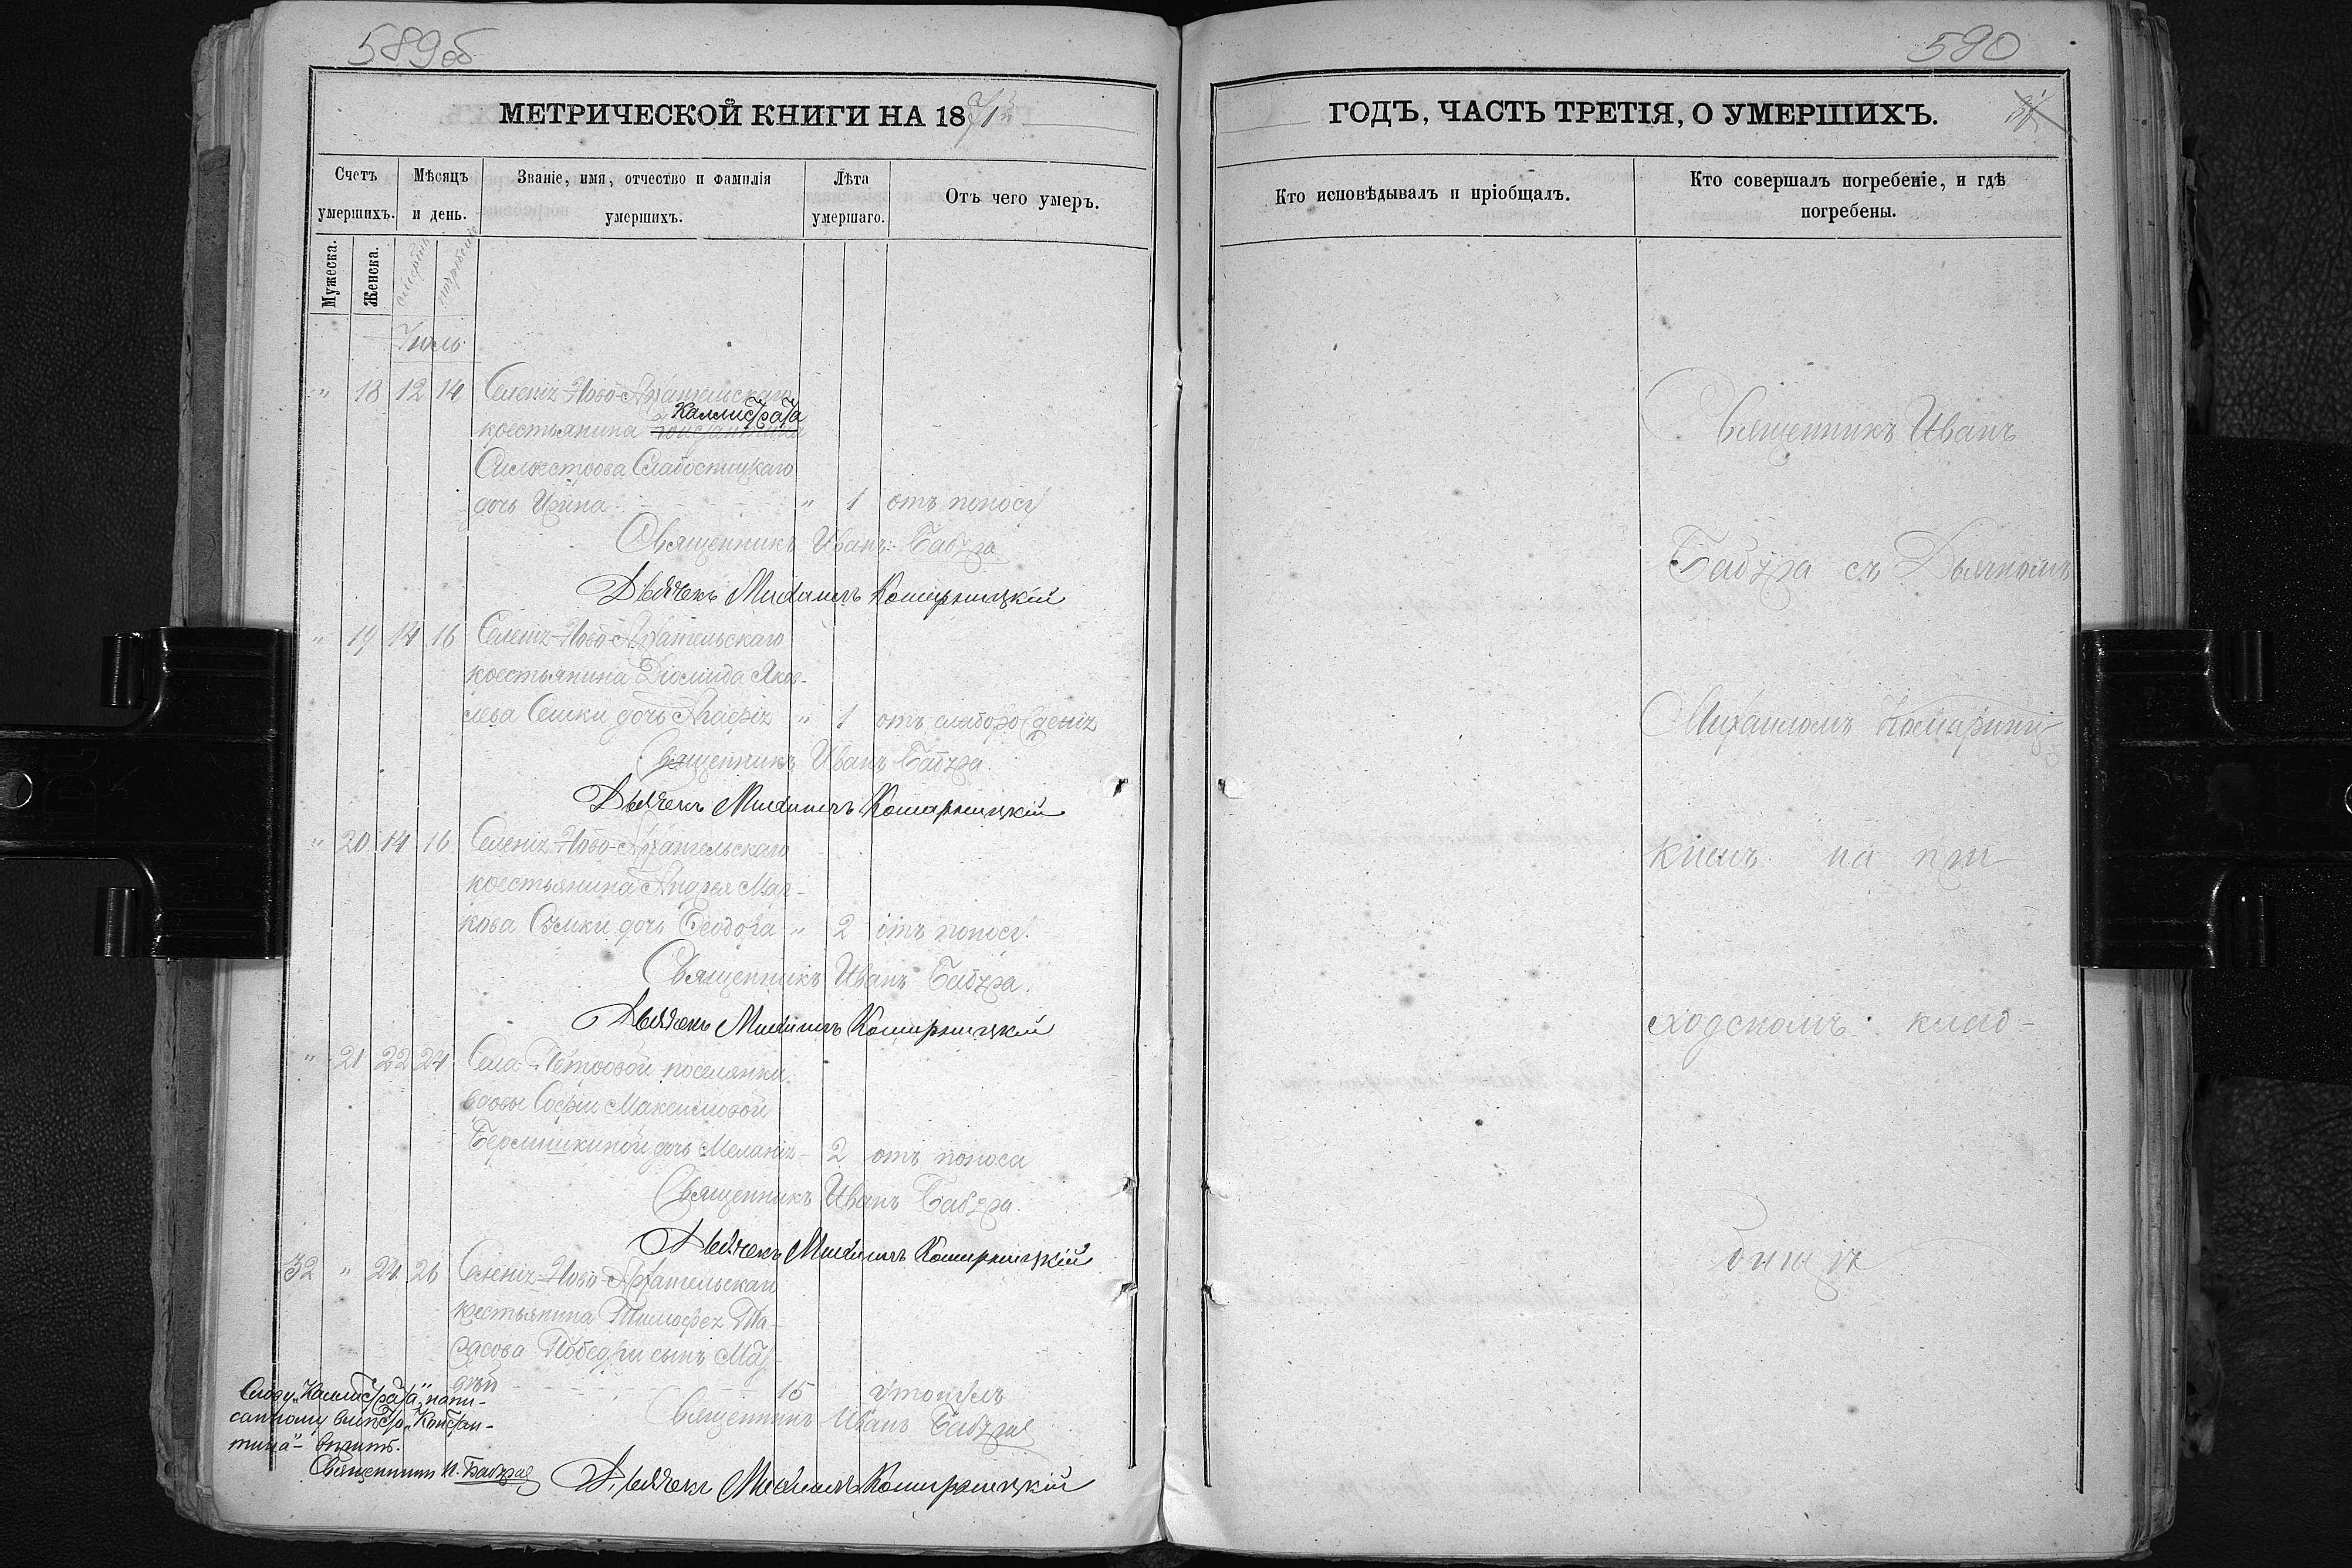 589об
МЕТРИЧЕСКОЙ КНИГИ НА 1871
Счетъ умершихъ.
Мѣсяцъ и день.
Званіе, имя, отчество и фамилія умершихъ.
Лѣта умершаго.
Отъ чего умеръ.
Мужеска.
Женска.
смерти
погребенія
Іюль
" 18 12 14 Селенія Ново-Архангельскаго
Каллистрата
крестьянина Константина
Сильвестрова Слабостицкаго
дочь Ирина " 1 отъ поносу
Священникъ Иванъ Бабура
Дьячекъ Михаилъ Комарницкій
" 19 14 16 Селенія Ново-Архангельскаго
крестьянина Діомида Яков-
лева Сешки дочь Агафія " 1 отъ слаборожденія
Священникъ Иванъ Бабура.
Дьячекъ Михаилъ Комарницкій
" 20 14 16 Селенія Ново-Архангельскаго
крестьянина Андрея Мар-
кова Семки дочь Феодора " 2 отъ поносу.
Священникъ Иванъ Бабура.
Дьячекъ Михаилъ Комарницкій
" 21 22 24 Села Петровой поселянки
вдовы Софіи Максимовой
дочь Меланія - 2 отъ поноса
Священникъ Иванъ Бабура.
Дьячекъ Михаилъ Комарницкій
32 " 24 26 Селенія Ново-Архангельскаго
крестьянина Тимофея Та-
расова сынъ Мат-
фѣй 15 утонулъ
Священникъ Иванъ Бабура
Дьячекъ Михаилъ Комарницкій
Слову „Каллистрата" напи-
санному вмѣсто „Констан-
тина" - вѣрить.
Священникъ И. Бабура
590
ГОДЪ, ЧАСТЬ ТРЕТІЯ, О УМЕРШИХЪ.
Кто исповѣдывалъ и пріобщалъ.
Кто совершалъ погребеніе, и гдѣ погребены.
Священникъ Иванъ
Бабура съ Дьячкомъ
Михаиломъ Комарниц
кимъ на при
ходскомъ клад-
бищѣ